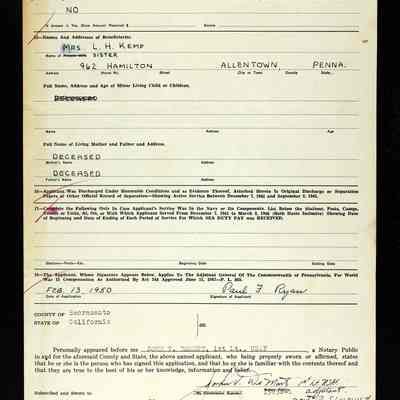 NO
Names And Addresses of Beneficiaries
MRS. L. H. KEMP
SISTER
962 HAMILTON ALLENTOWN, PENNA.
Address House No. Street City or Town County State
Full Name, Address and Age of Minor Living Child or Children.
Name Address Age
Name Address Age
Full Name of Living Mother and Father and Address.
DECEASED
Mother's Name Address
DECEASED
Father's Name Address
Applicant Was Discharged Under Honorable Conditions and as Evidence Thereof, Attached Hereto is Original Discharge or Separation
Papers or Other Official Record of Separation—Showing Active Service Between December 7, 1941 and September 2, 1945.
Complete the Following Only In Case Applicant's Service Was In the Navy or Its Components. List Below the Stations, Posts, Camps,
Vessels or Units, At, On, or With Which Applicant Served From December 7, 1941 to March 2, 1946 (Both Dates Inclusive) Showing Date
of Beginning and Date of Ending of Each Period of Service For Which SEA DUTY PAY was RECEIVED:
Stations—Posts—Etc. Beginning Date Ending Date
The Applicant, Whose Signature Appears Below, Applies To The Adjutant General Of The Commonwealth of Pennsylvania, For World
War II Compensation As Authorized By Act
FEB. 13, 1950 Paul F Ryan
Date of Application Signature of Applicant
COUNTY OF Sacramento
STATE OF California
ss:
Personally appeared before me 1st Lt., USAF a Notary Public
in and for the aforesaid County and State, the above named applicant, who being properly sworn or affirmed, states
that he or she is the person who has signed this application, and that he or she is familiar with the contents thereof and
that they are true to the best of his or her knowledge, information and belief.
Subscribed and sworn to